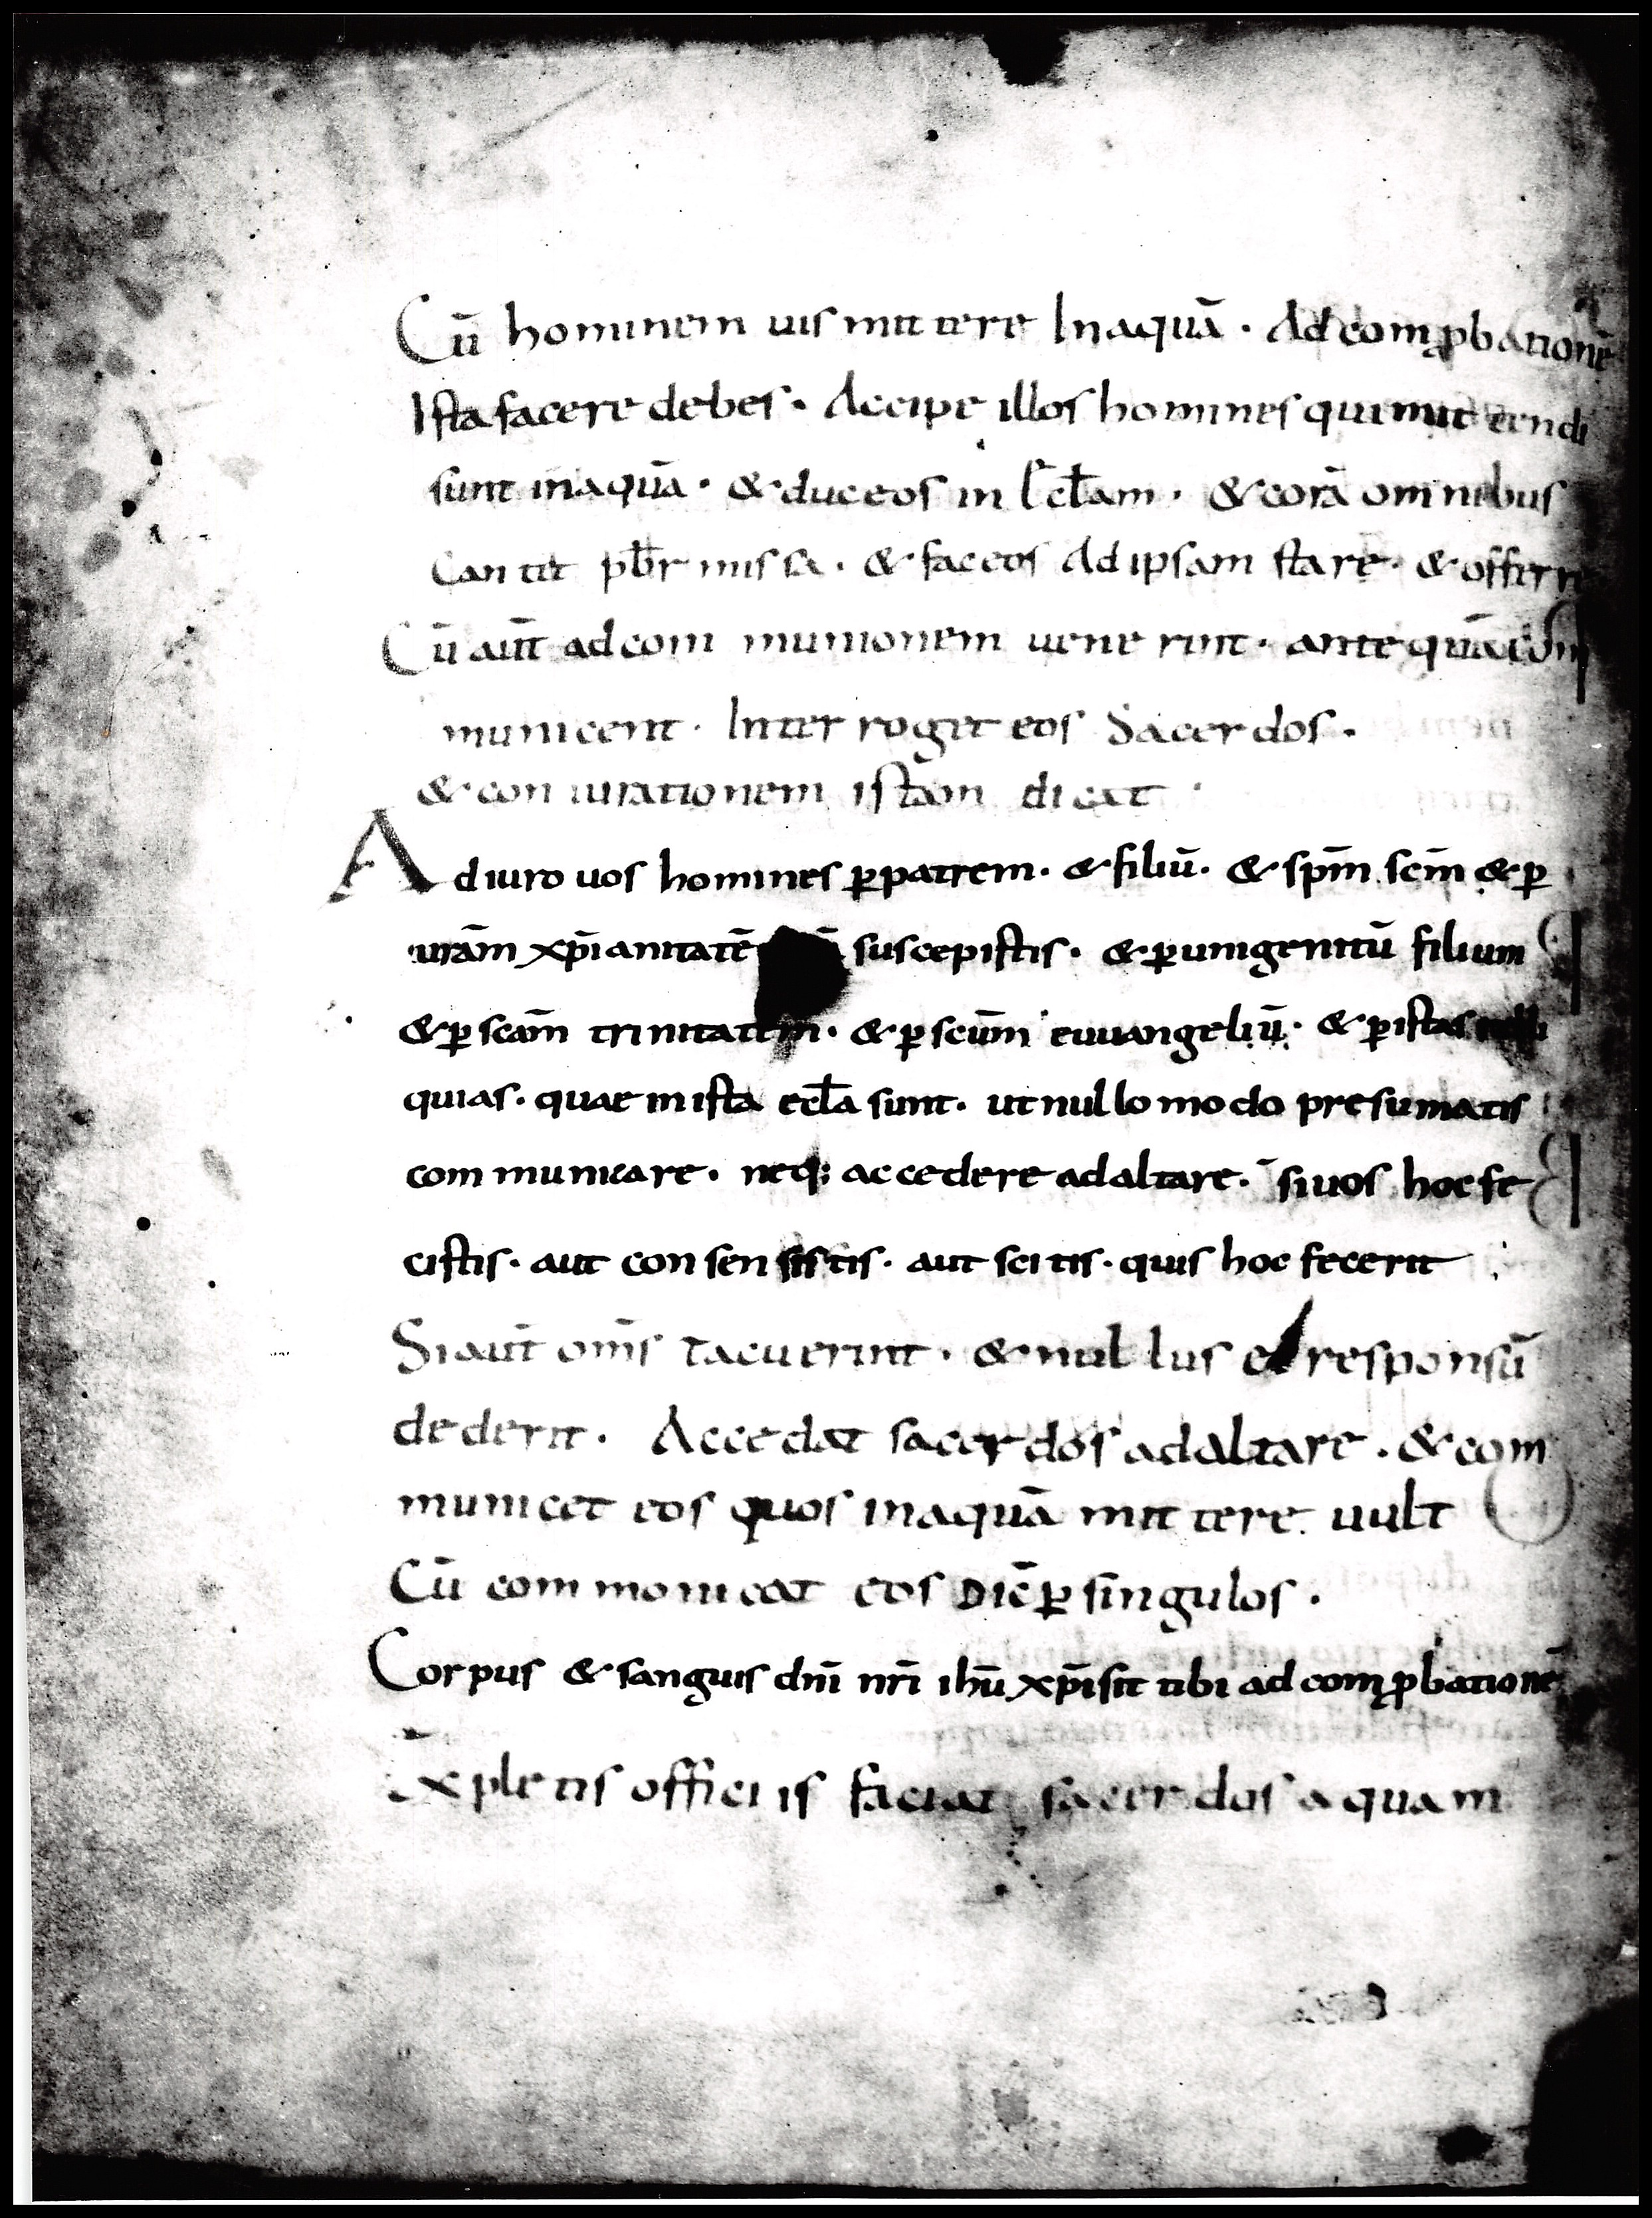 Cū hominem uis mittere Inaquā · Ad comꝓbationē
Ista facere debes · Accipe illos homines qui mittendi
sunt inaquā · & duc eos in Eccƚam · & corā omnibus
Cantet pƀr missa · & fac eos Ad ipsam stare · & offerre
Cū aut̄ ad com munionem uene rint · ante quā com
municent · Inter roget eos Sacer dos ·
& con iurationem istam dicat ·
Adiuro uos homines ꝑ patrem · & filiū · & sp̄m sc̄m & ꝑ
ur̄am xp̄ianitatē suscepistis · & ꝑ unigenitū filium
& ꝑ sc̄am trinitatem · & ꝑ sc̄um euuangeliū · & ꝑ istas
quias · quae in ista ecƚa sunt · ut nullo modo presumatis
com municare · neq; accedere ad altare · si uos hoc fe
cistis · aut con sen sistis · aut sci tis · quis hoc fecerit
Si aut̄ om̄s tacuerint · & nul lus responsū
de derit · Accedat sacer dos ad altare · & com
municet eos quos inaquā mit tere uult
Cū com monicat eos DIC̄ ꝑ singulos ·
Corpus & sanguis dn̄i nr̄i ih̄u xp̄i sit tibi ad comꝓbationē
Expletis officiis faciat sacer dos aquam